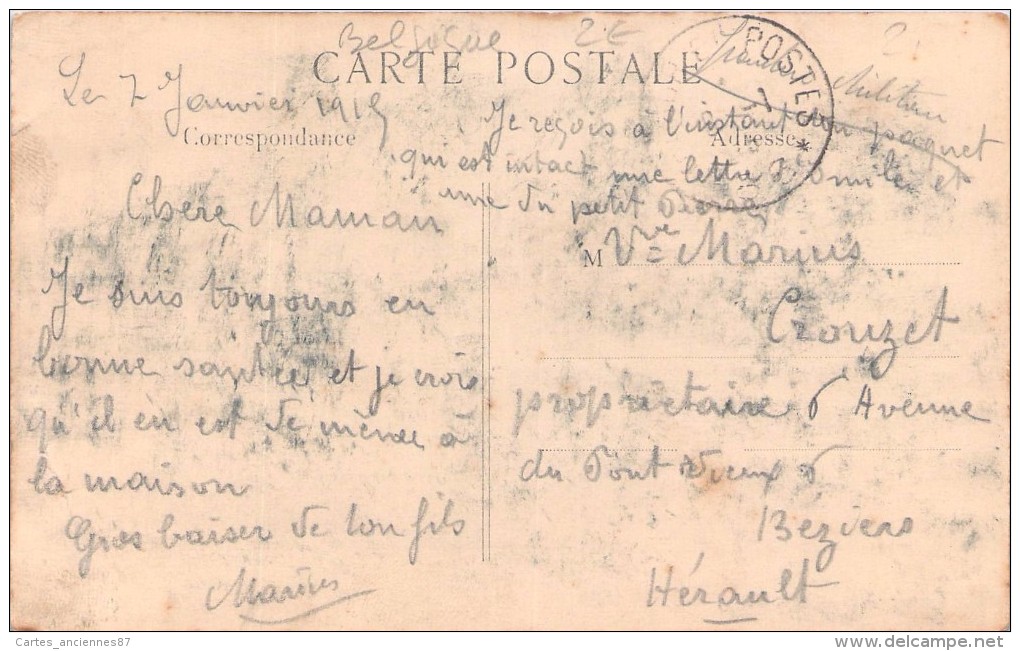 Belgique 2€
CARTE POSTALE
POSTES *
Militaire
Le 7 Janvier 1915
Correspondance
Adresse
Je reçois à l'instant ton paquet
qui est intact, une lettre d'Emile et
une du petit Pierre
Chère Maman
Je suis toujours en
bonne santée et je crois
qu'il en est de même à
la maison
Gros baiser de ton fils
Marius
M Vve Marius
Crouzet
propriétaire 6 Avenue
du Pont Vieux 6
Beziers
Hérault
Cartes_anciennes87
www.delcampe.net